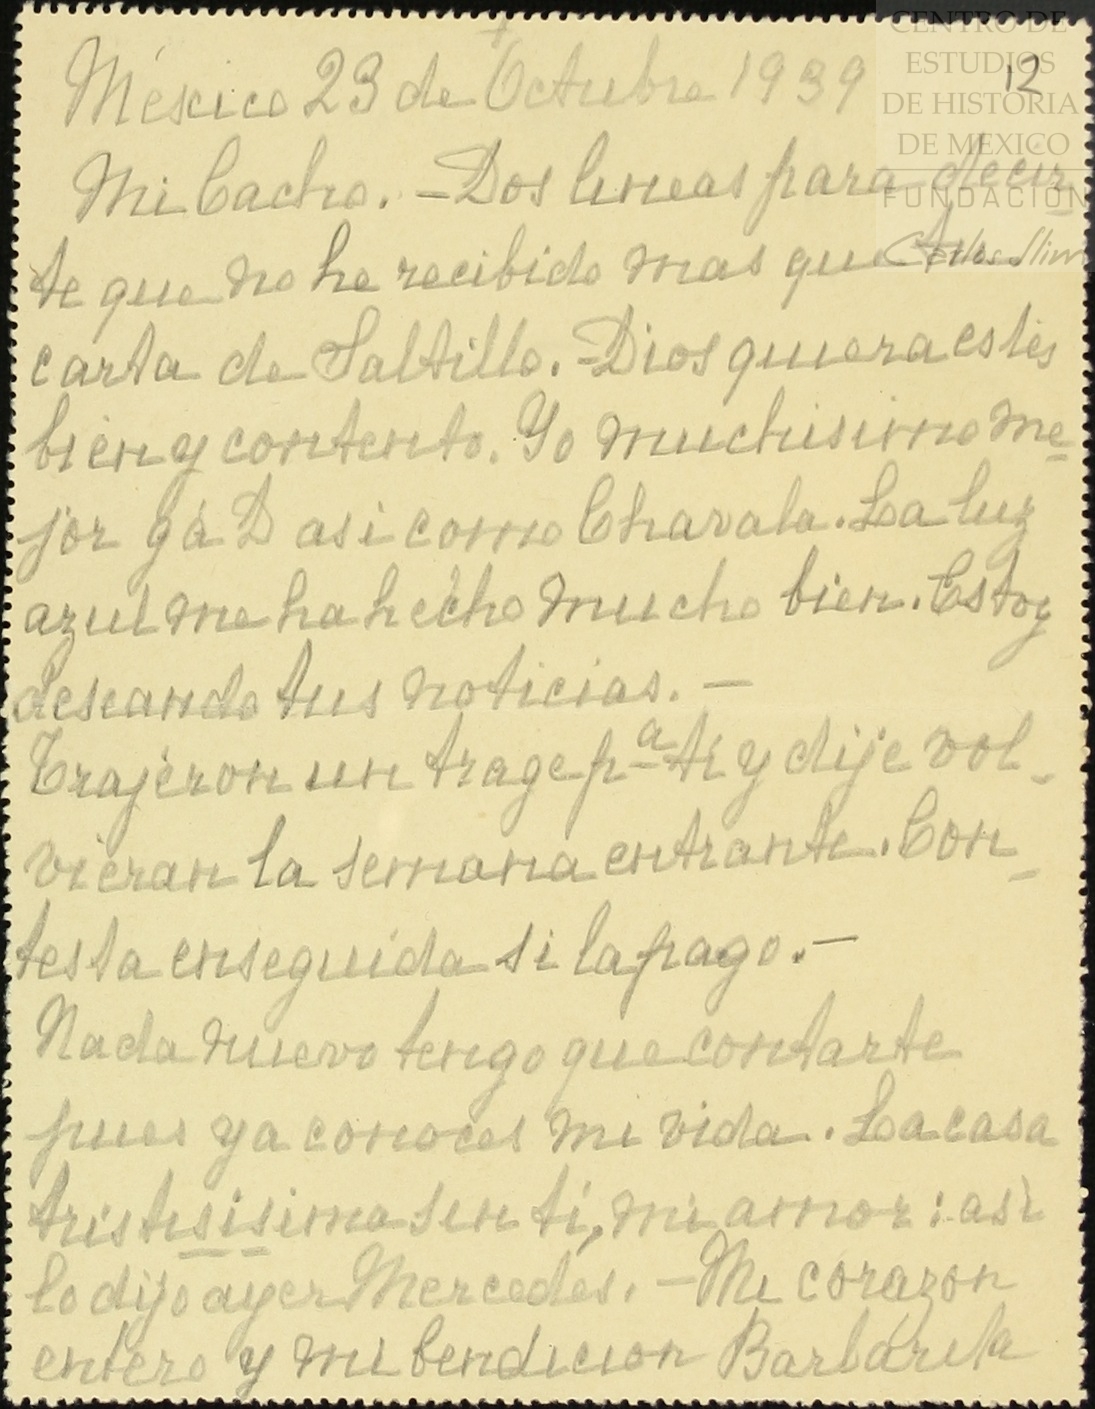 +
México 23 de Octubre 1939
12
CENTRO DE
ESTUDIOS
DE HISTORIA
DE MEXICO
FUNDACIÓN
Carlos Slim
Mi Cacho. - Dos lineas para decir
te que no he recibido mas que tu
carta de Saltillo. - Dios quiera estés
bien y contento. Yo muchisimo me-
jor g á D asi como Chavala. La luz
azul me ha hécho mucho bien. Estoy
deseando tus noticias. -
Trajéron un trage pª tí y dije vol-
vieran la semana entrante. Con-
testa enseguida si la pago. -
Nada nuevo tengo que contarte
pues ya conoces mi vida. La casa
tristisisima sin tí, mi amor: asi
lo dijo ayer Mercedes. - Mi corazon
entero y mi bendicion Barbarita